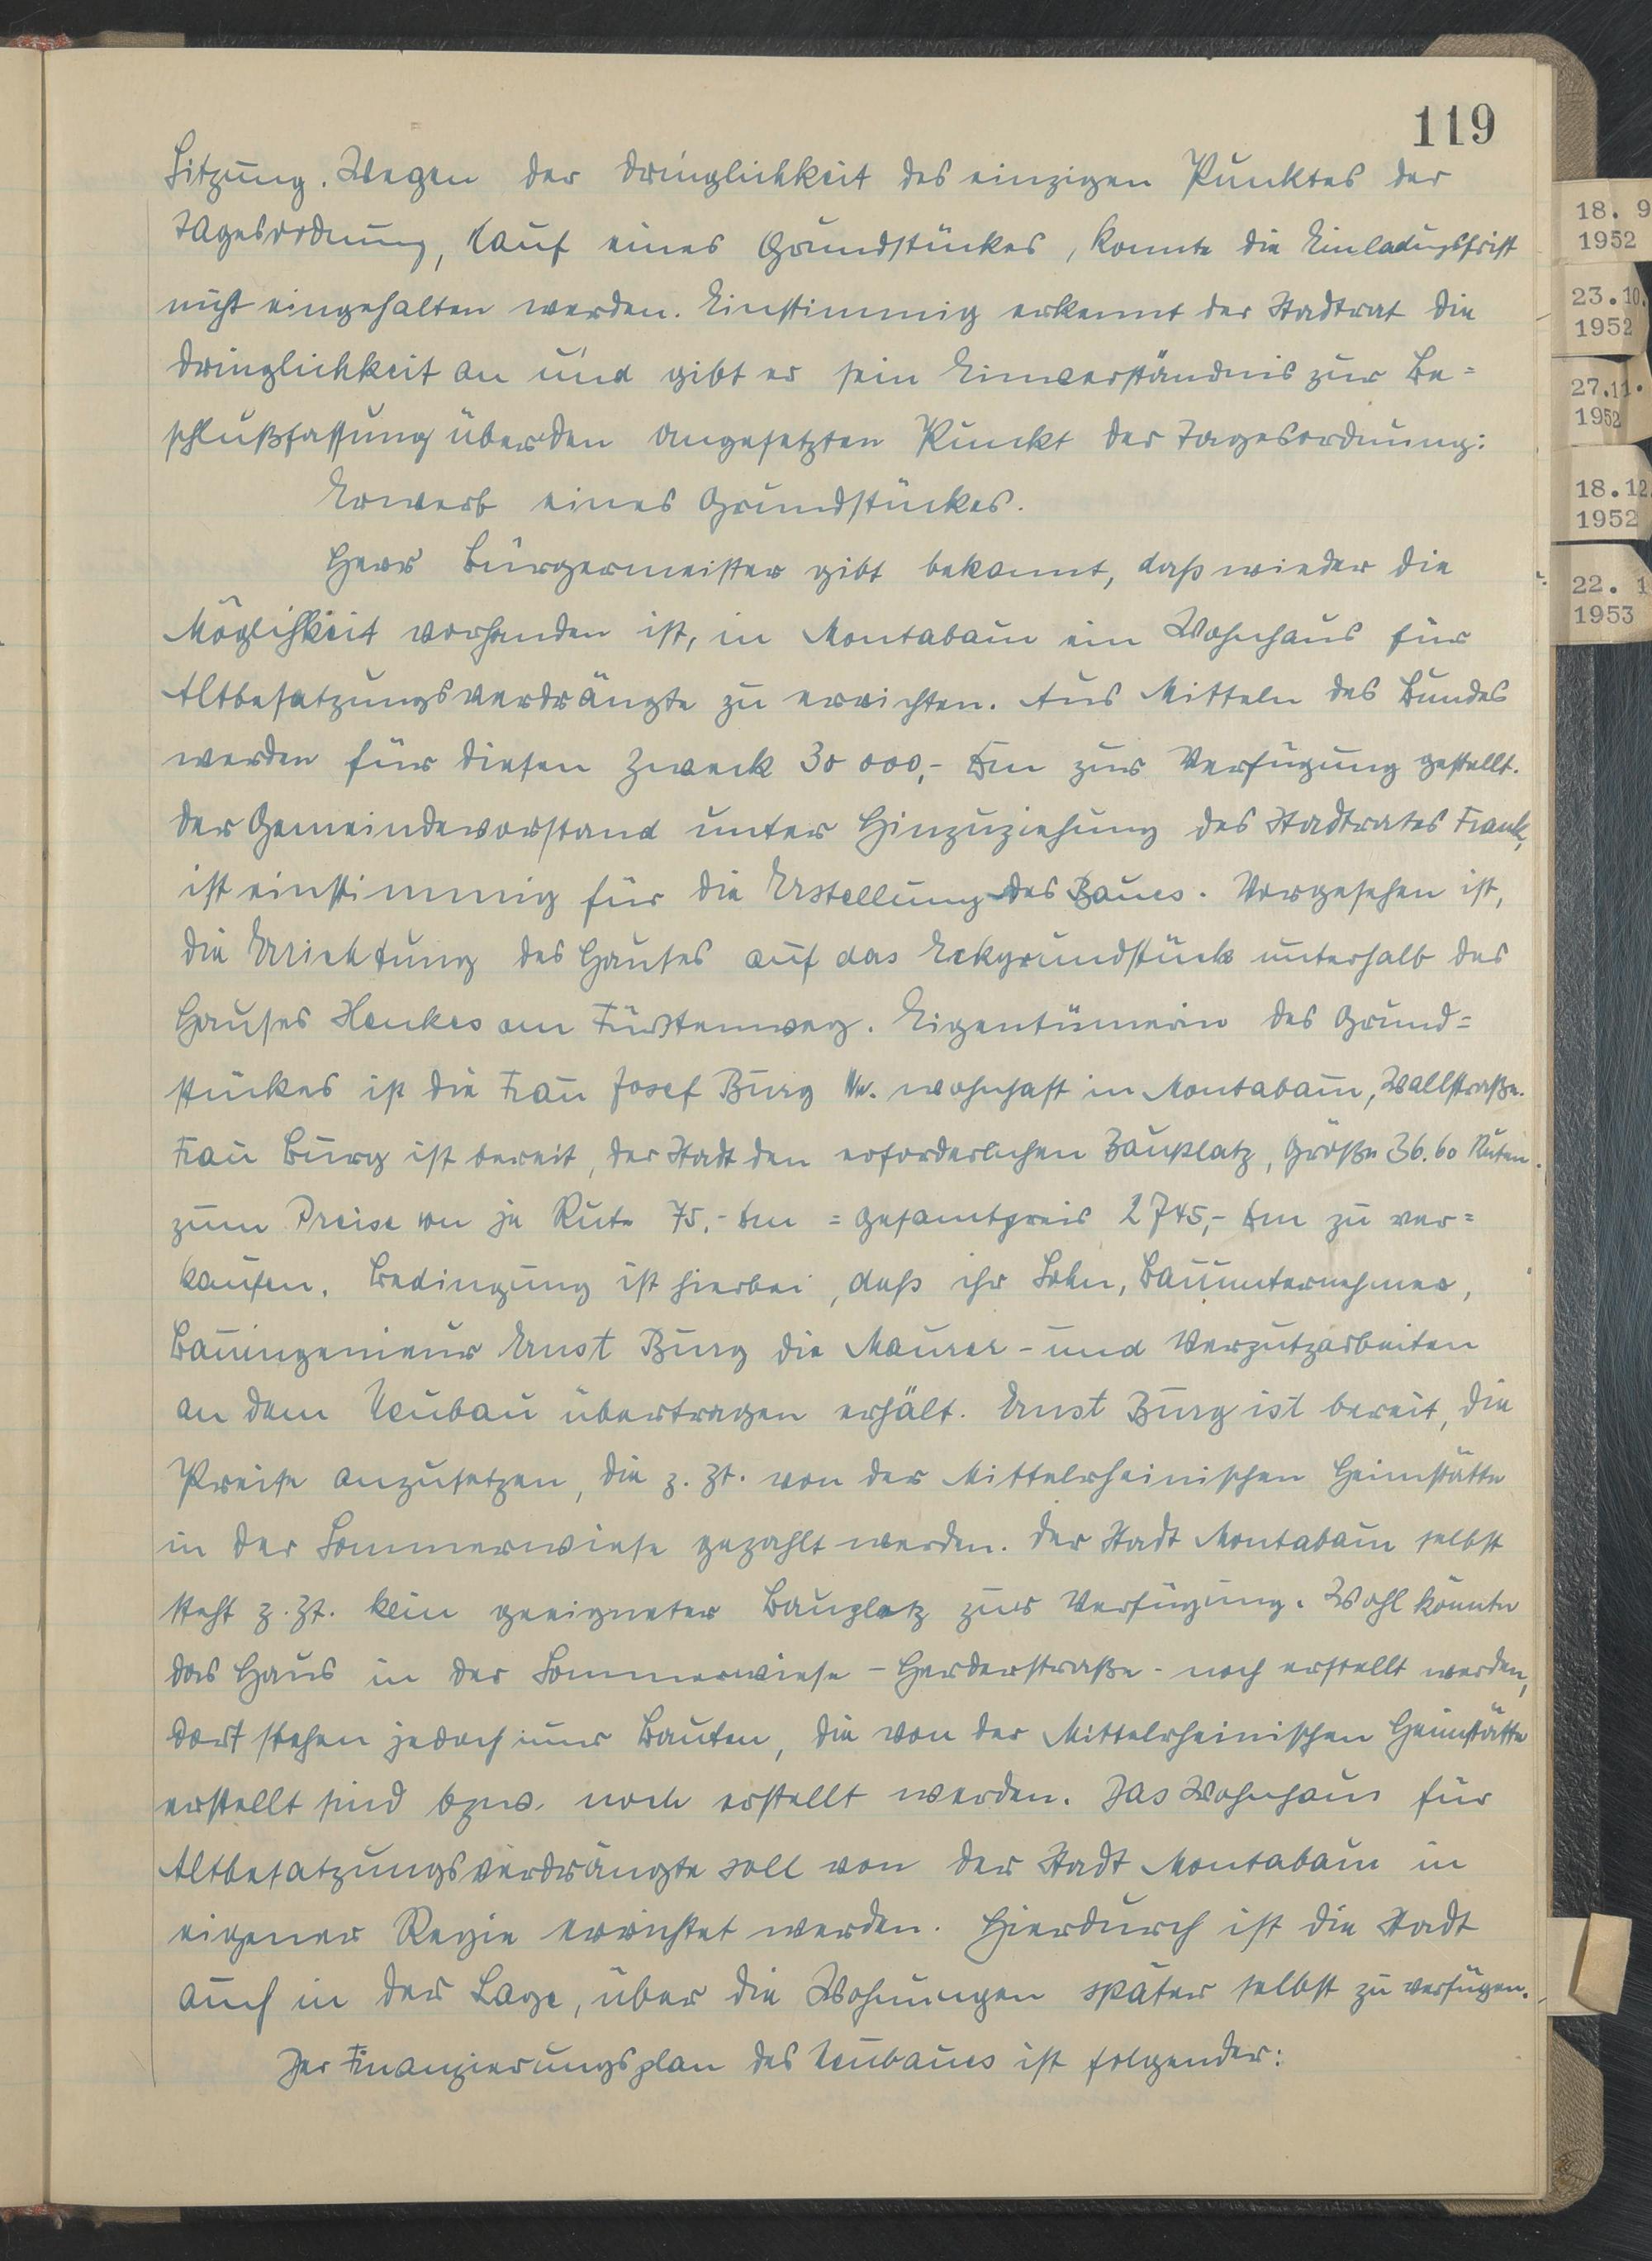 119
Sitzung. Wegen der Dringlichkeit des einzigen Punktes der
Tagesordnung, Kauf eines Grundstückes, konnte die Einladungsfrist
nicht eingehalten werden. Einstimmig erkennt der Stadtrat die
Dringlichkeit an und gibt er sein Einverständnis zur Be=
schlußfassung über den angesetzten Punkt der Tagesordnung:
Erwerb eines Grundstückes.
Herr Bürgermeister gibt bekannt, daß wieder die
Möglichkeit vorhanden ist, in Montabaur ein Wohnhaus für
Altbesatzungsverdrängte zu errichten. Aus Mitteln des Bundes
werden für diesen Zweck 30 000,- Dm zur Verfügung gestellt.
Der Gemeindevorstand unter Hinzuziehung des Stadtrates Frank,
ist einstimmig für die Erstellung des Baues. Vorgesehen ist,
die Errichtung des Hauses auf das Eckgrundstück unterhalb des
Hauses Henkes am Fürstenweg. Eigentümerin des Grund=
stückes ist die Frau Josef Burg Ww. wohnhaft in Montabaur, Wallstraße.
Frau Burg ist bereit, der Stadt den erforderlichen Bauplatz, Größe 36.60 Ruten
zum Preise von je Rute 75,- Dm = Gesamtpreis 2745,- Dm zu ver=
kaufen. Bedingung ist hierbei, daß ihr Sohn, Bauunternehmer,
Bauingenieur Ernst Burg die Maurer- und Verputzarbeiten
an dem Neubau übertragen erhält. Ernst Burg ist bereit, die
Preise anzusetzen, die z. Zt. von der Mittelrheinischen Heimstätte
in der Sommerwiese gezahlt werden. Der Stadt Montabaur selbst
steht z. Zt. kein geeigneter Bauplatz zur Verfügung. Wohl könnte
das Haus in der Sommerwiese - Herderstraße - noch erstellt werden,
dort stehen jedoch nur Bauten, die von der Mittelrheinischen Heimstätte
erstellt sind bzw. noch erstellt werden. Das Wohnhaus für
Altbesatzungsverdrängte soll von der Stadt Montabaur in
eigener Regie errichtet werden. Hierdurch ist die Stadt
auch in der Lage, über die Wohnungen später selbst zu verfügen.
Der Finanzierungsplan des Neubaues ist folgender:
18. 9
1952
23.10.
1952
27.11.
1952
18.12.
1952
22. 1
1953